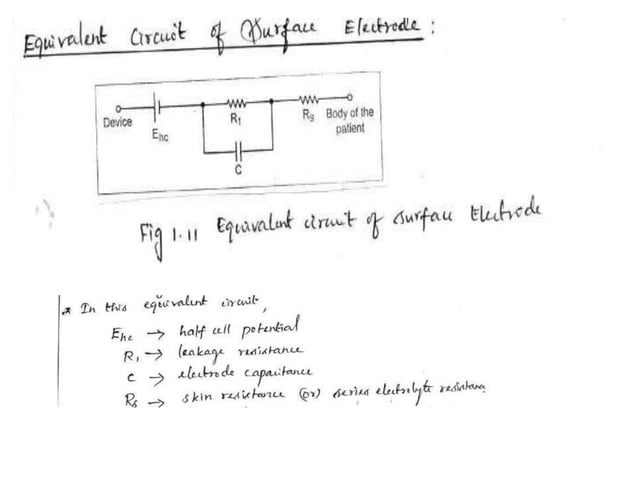 Equivalent Circuit of Surface Electrode :
Device
Ehc
R1
C
Rs
Body of the
patient
Fig 1.11 Equivalent circuit of surface Electrode
* In this equivalent circuit,
Ehc → half cell potential
R1 → leakage resistance
C → electrode capacitance
Rs → skin resistance (or) series electrolyte resistance